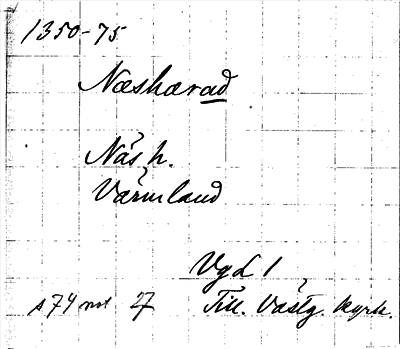 1350-75
Næsharað
Näs h.
Värmland
VgL 1
s 74 not 27 Till. Västg. kyrk.